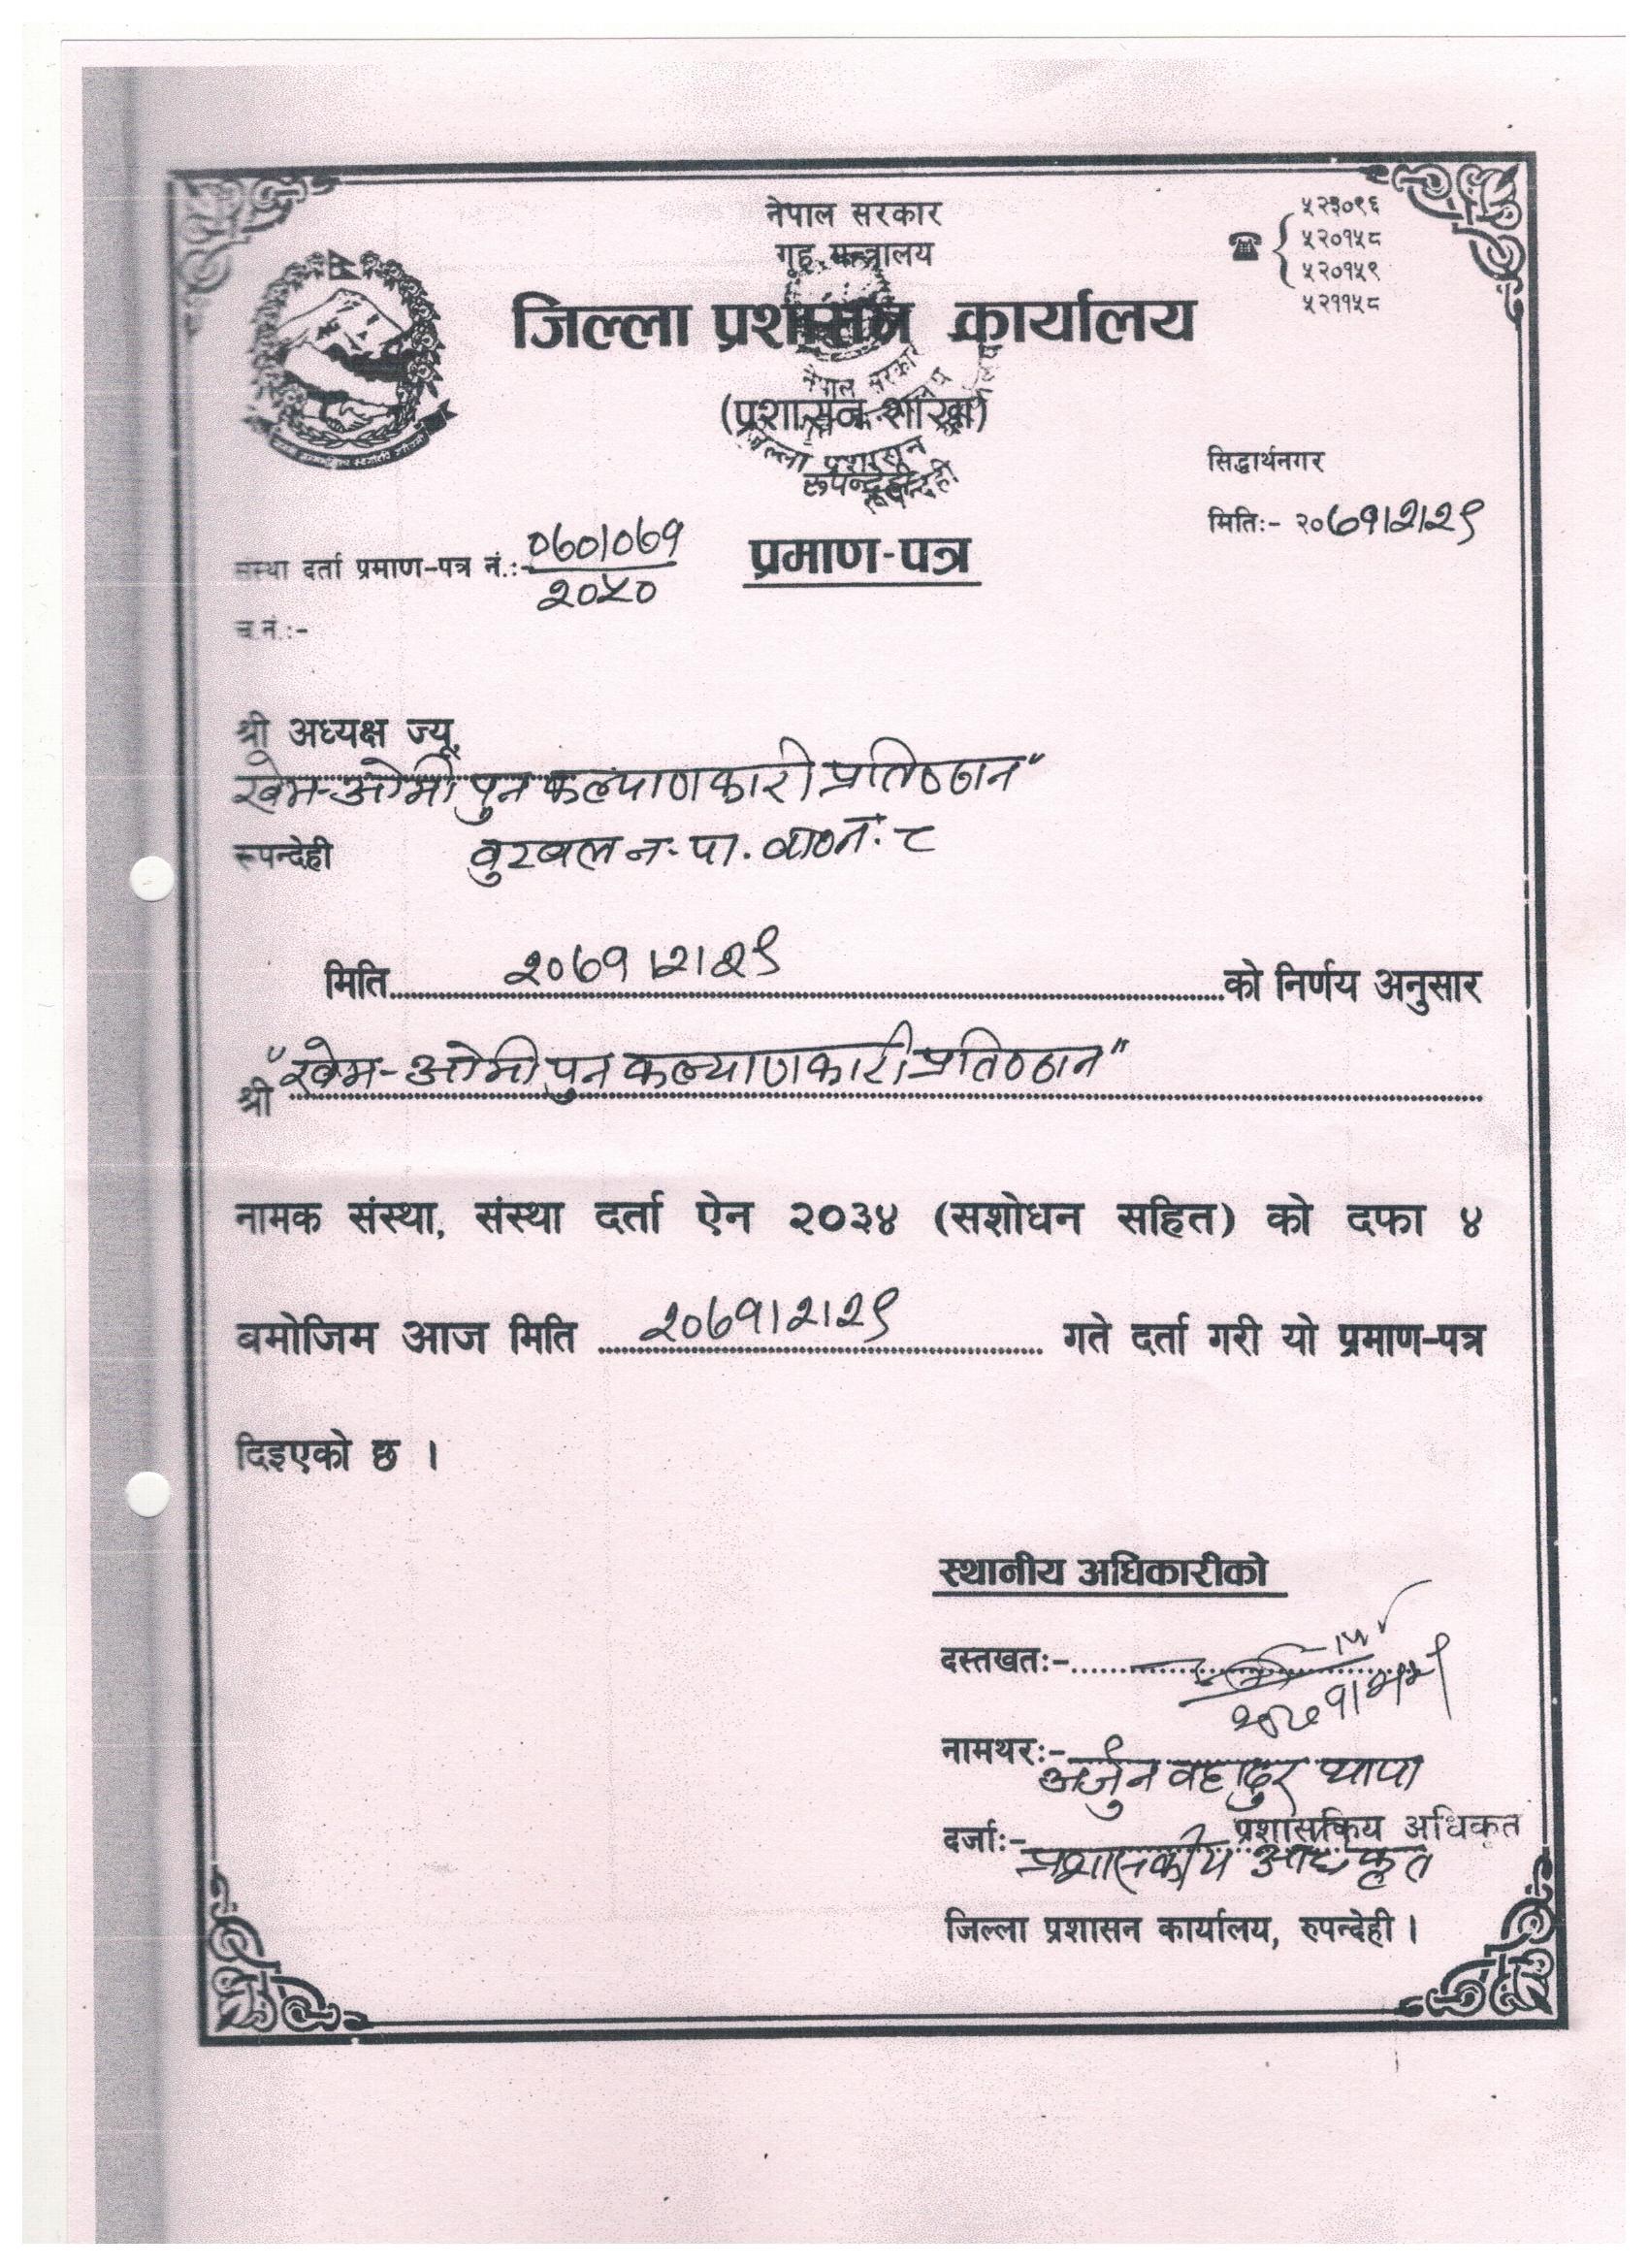 नेपाल सरकार
गृह मन्त्रालय
जिल्ला प्रशासन कार्यालय
(प्रशासन शाखा)
रूपन्देही
५२३०९६
५२०१५८
५२०१५९
५२११५८
नेपाल सरकार
जिल्ला प्रशासन
रूपन्देही
सिद्धार्थनगर
मितिः- २०७१।२।२९
संस्था दर्ता प्रमाण-पत्र नं.:- ०७०/०७१
२०५०
प्रमाण-पत्र
च.नं.:-
श्री अध्यक्ष ज्यू,
खेम-ओमी पुन कल्याणकारी प्रतिष्ठान"
रूपन्देही वुटवल न.पा. वडा नं. ८
मिति २०७१।२।२९ को निर्णय अनुसार
श्री "खेम-ओमी पुन कल्याणकारी प्रतिष्ठान"
नामक संस्था, संस्था दर्ता ऐन २०३४ (सशोधन सहित) को दफा ४
बमोजिम आज मिति २०७१।२।२९ गते दर्ता गरी यो प्रमाण-पत्र
दिइएको छ ।
स्थानीय अधिकारीको
दस्तखतः-
नामथरः- अर्जुन वहादुर थापा
प्रशासकिय अधिकृत
दर्जाः- प्रशासकीय अधिकृत
जिल्ला प्रशासन कार्यालय, रुपन्देही ।